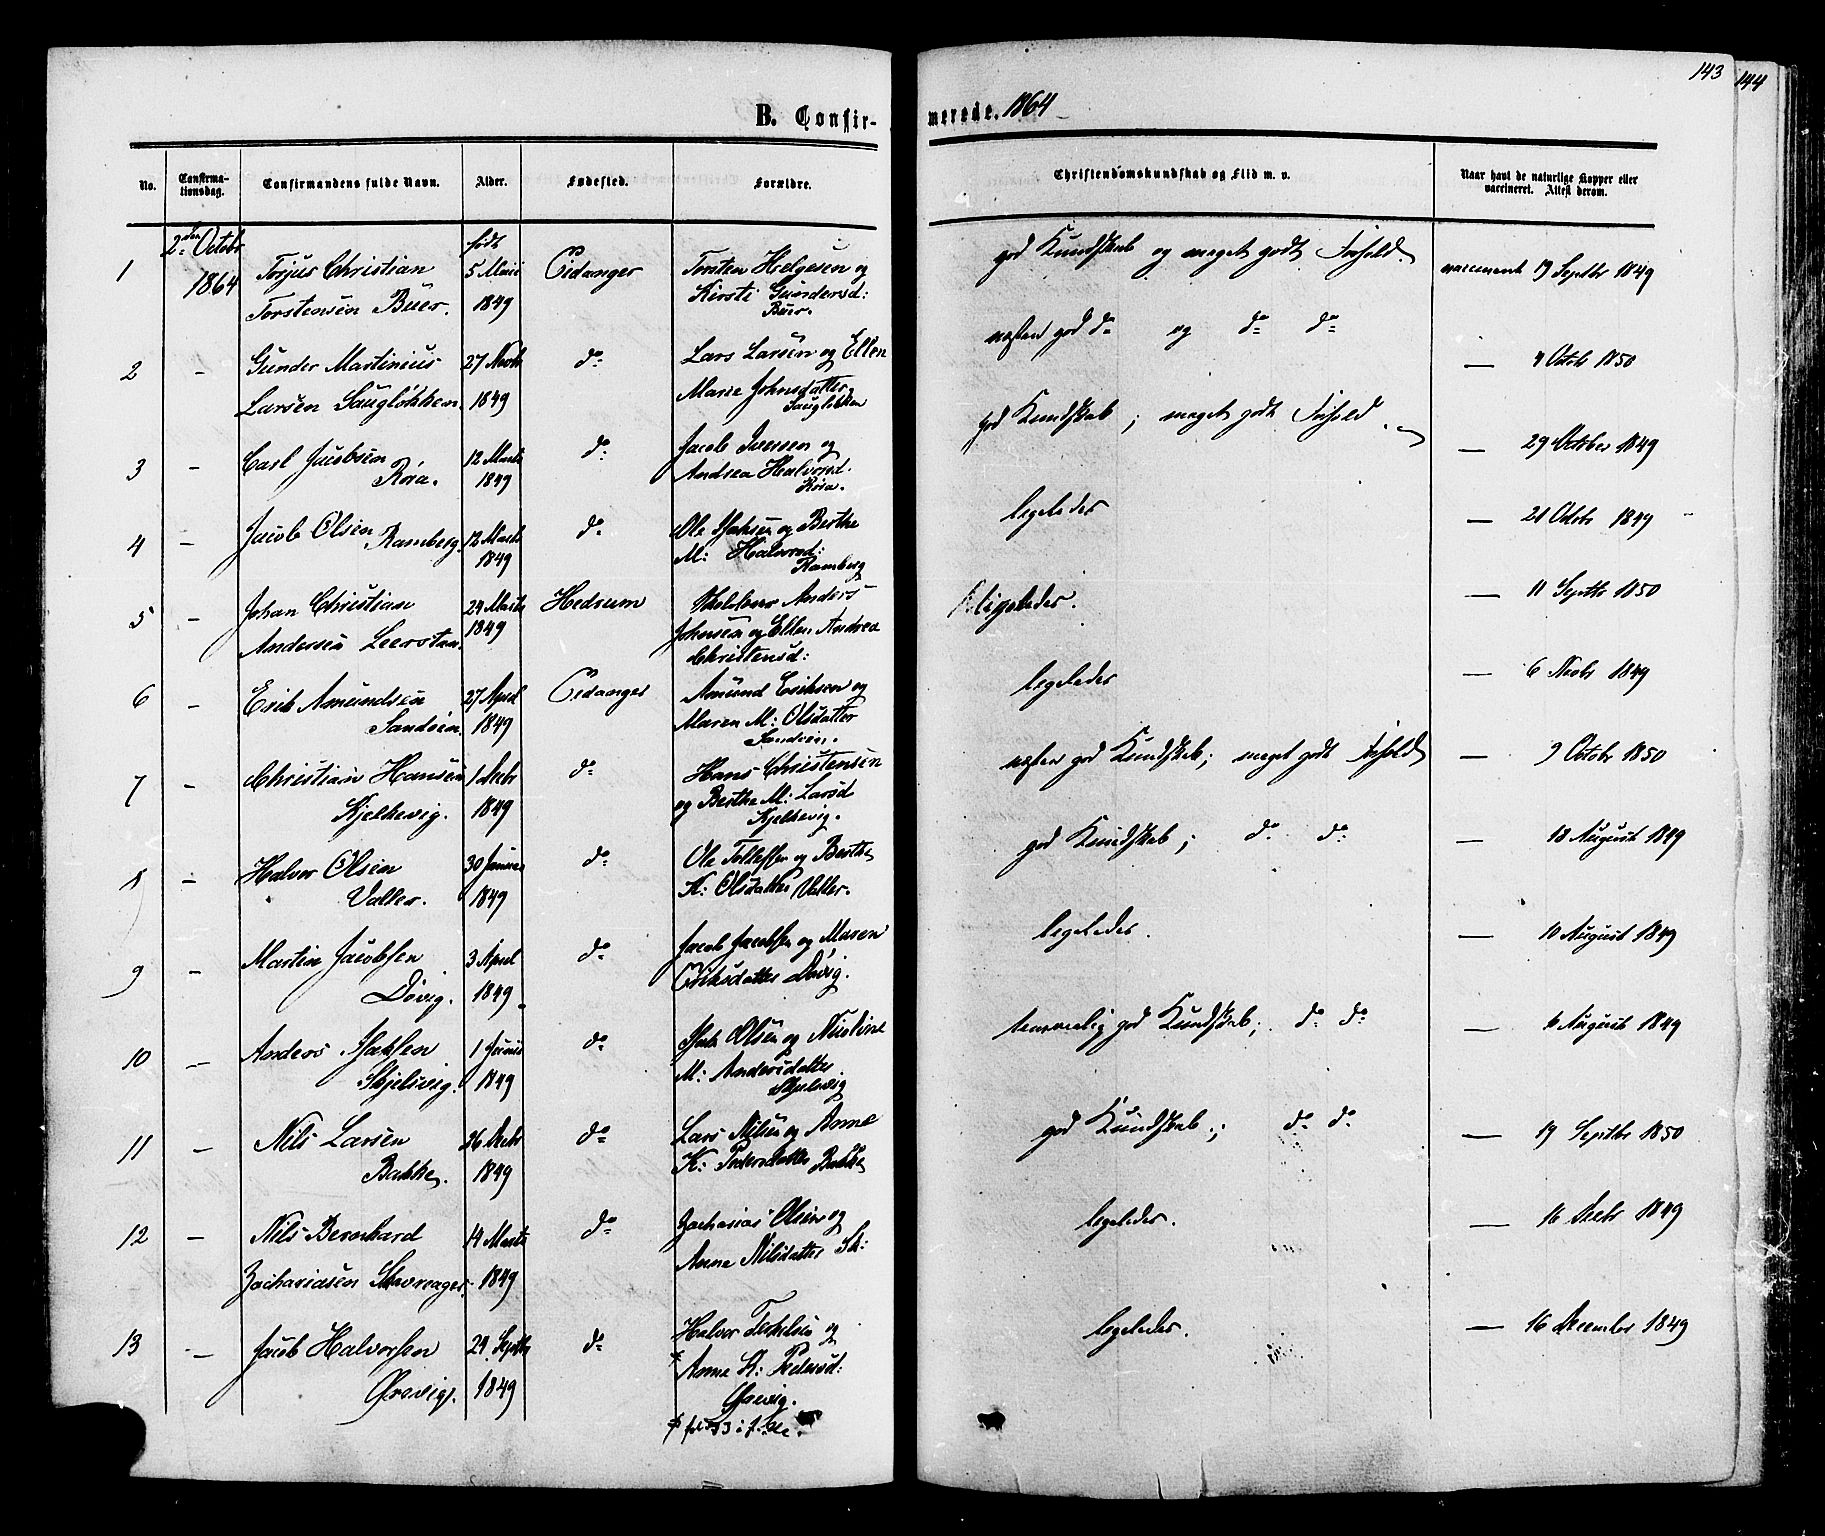 143
144
B. Confir-
merede. 1864
No.
Confirma-
tionsdag.
Confirmandens fulde Navn.
Alder.
Fødested.
Forældre.
Christendomskundskab og Flid m. v.
Naar havt de naturlige Kopper eller
vaccineret. Attest derom.
1
2den Octobr
1864
Torjus Christian
Torstensen Buer.
født
5 Maii
1849
Eidanger
Torsten Helgesen og
Kirsti Gundersd:
Buer.
god Kundskab og meget godt Forhold.
vaccineret 19 Septbr 1849
2
-
Gunder Martinius
Larsen Saugløkken
27 Novbr
1849
do
Lars Larsen og Ellen
Marie Johnsdatter
Saugløkken
næsten god do og do do
— 4 Octob 1850
3
-
Carl Jacobsen
Røra.
12 Marts
1849
do
Jacob Iversen og
Andrea Halvorsd.
Røra.
god Kundskab; meget godt Forhold.
— 29 October 1849
4
-
Jacob Olsen
Ramberg.
12 Marts
1849
do
Ole Isaksen og Berthe
M: Halvorsd:
Ramberg
ligeledes
— 21 Octobr 1849
5
-
Johan Christian
Andersen Leerstan.
24 Marts
1849
Hedrum
Anders
Johnsen og Ellen Andrea
Christensd:
ligeledes.
— 11 Septbr 1850
6
-
Erik Amundsen
Sandøen.
27 April
1849
Eidanger
Amund Eriksen og
Maren M: Olsdatter
Sandøen.
ligeledes
— 6 Novbr 1849
7
-
Christian Hansen
Kjelkevig.
1 Decbr
1849
do
Hans Christensen
og Berthe M: Larsd
Kjelkevig.
næsten god Kundskab; meget godt Forhold
— 9 Octobr 1850
8
-
Halvor Olsen
Valler.
30 Januar
1849
do
Ole Tollefsen og Berthe
K: Olsdatter Valler.
god Kundskab; do do
— 18 August 1849
9
-
Martin Jacobsen
Døvig.
3 April
1849.
do
Jacob Jacobsen og Maren
Eriksdatter Døvig.
ligeledes.
— 10 August 1849
10
-
Anders Isaksen
Skjelsvig.
1 Junii
1849
do
Isak Olsen og Nicoline
M: Andersdatter
Skjelsvig
temmelig god Kundskab; do do
— August 1849
11
-
Nils Larsen
Bakke.
26 Decbr
1849
do
Lars Nilsen og Anne
K: Pedersdatter Bakke
god Kundskab; do do
— 19 Septbr 1850
12
-
Nils Bernhard
Zachariasen Skavraager
14 Marts
1849
do
Zacharias Olsen og
Anne Nilsdatter Sk:
ligeledes.
— 16 Decbr 1849
13
-
Jacob Halvorsen
Ørevig.
29 Septbr
1849
do
Halvor Terkelsen og
Anne K: Pedersd:
Ørevig.
ligeledes.
— 16 December 1849